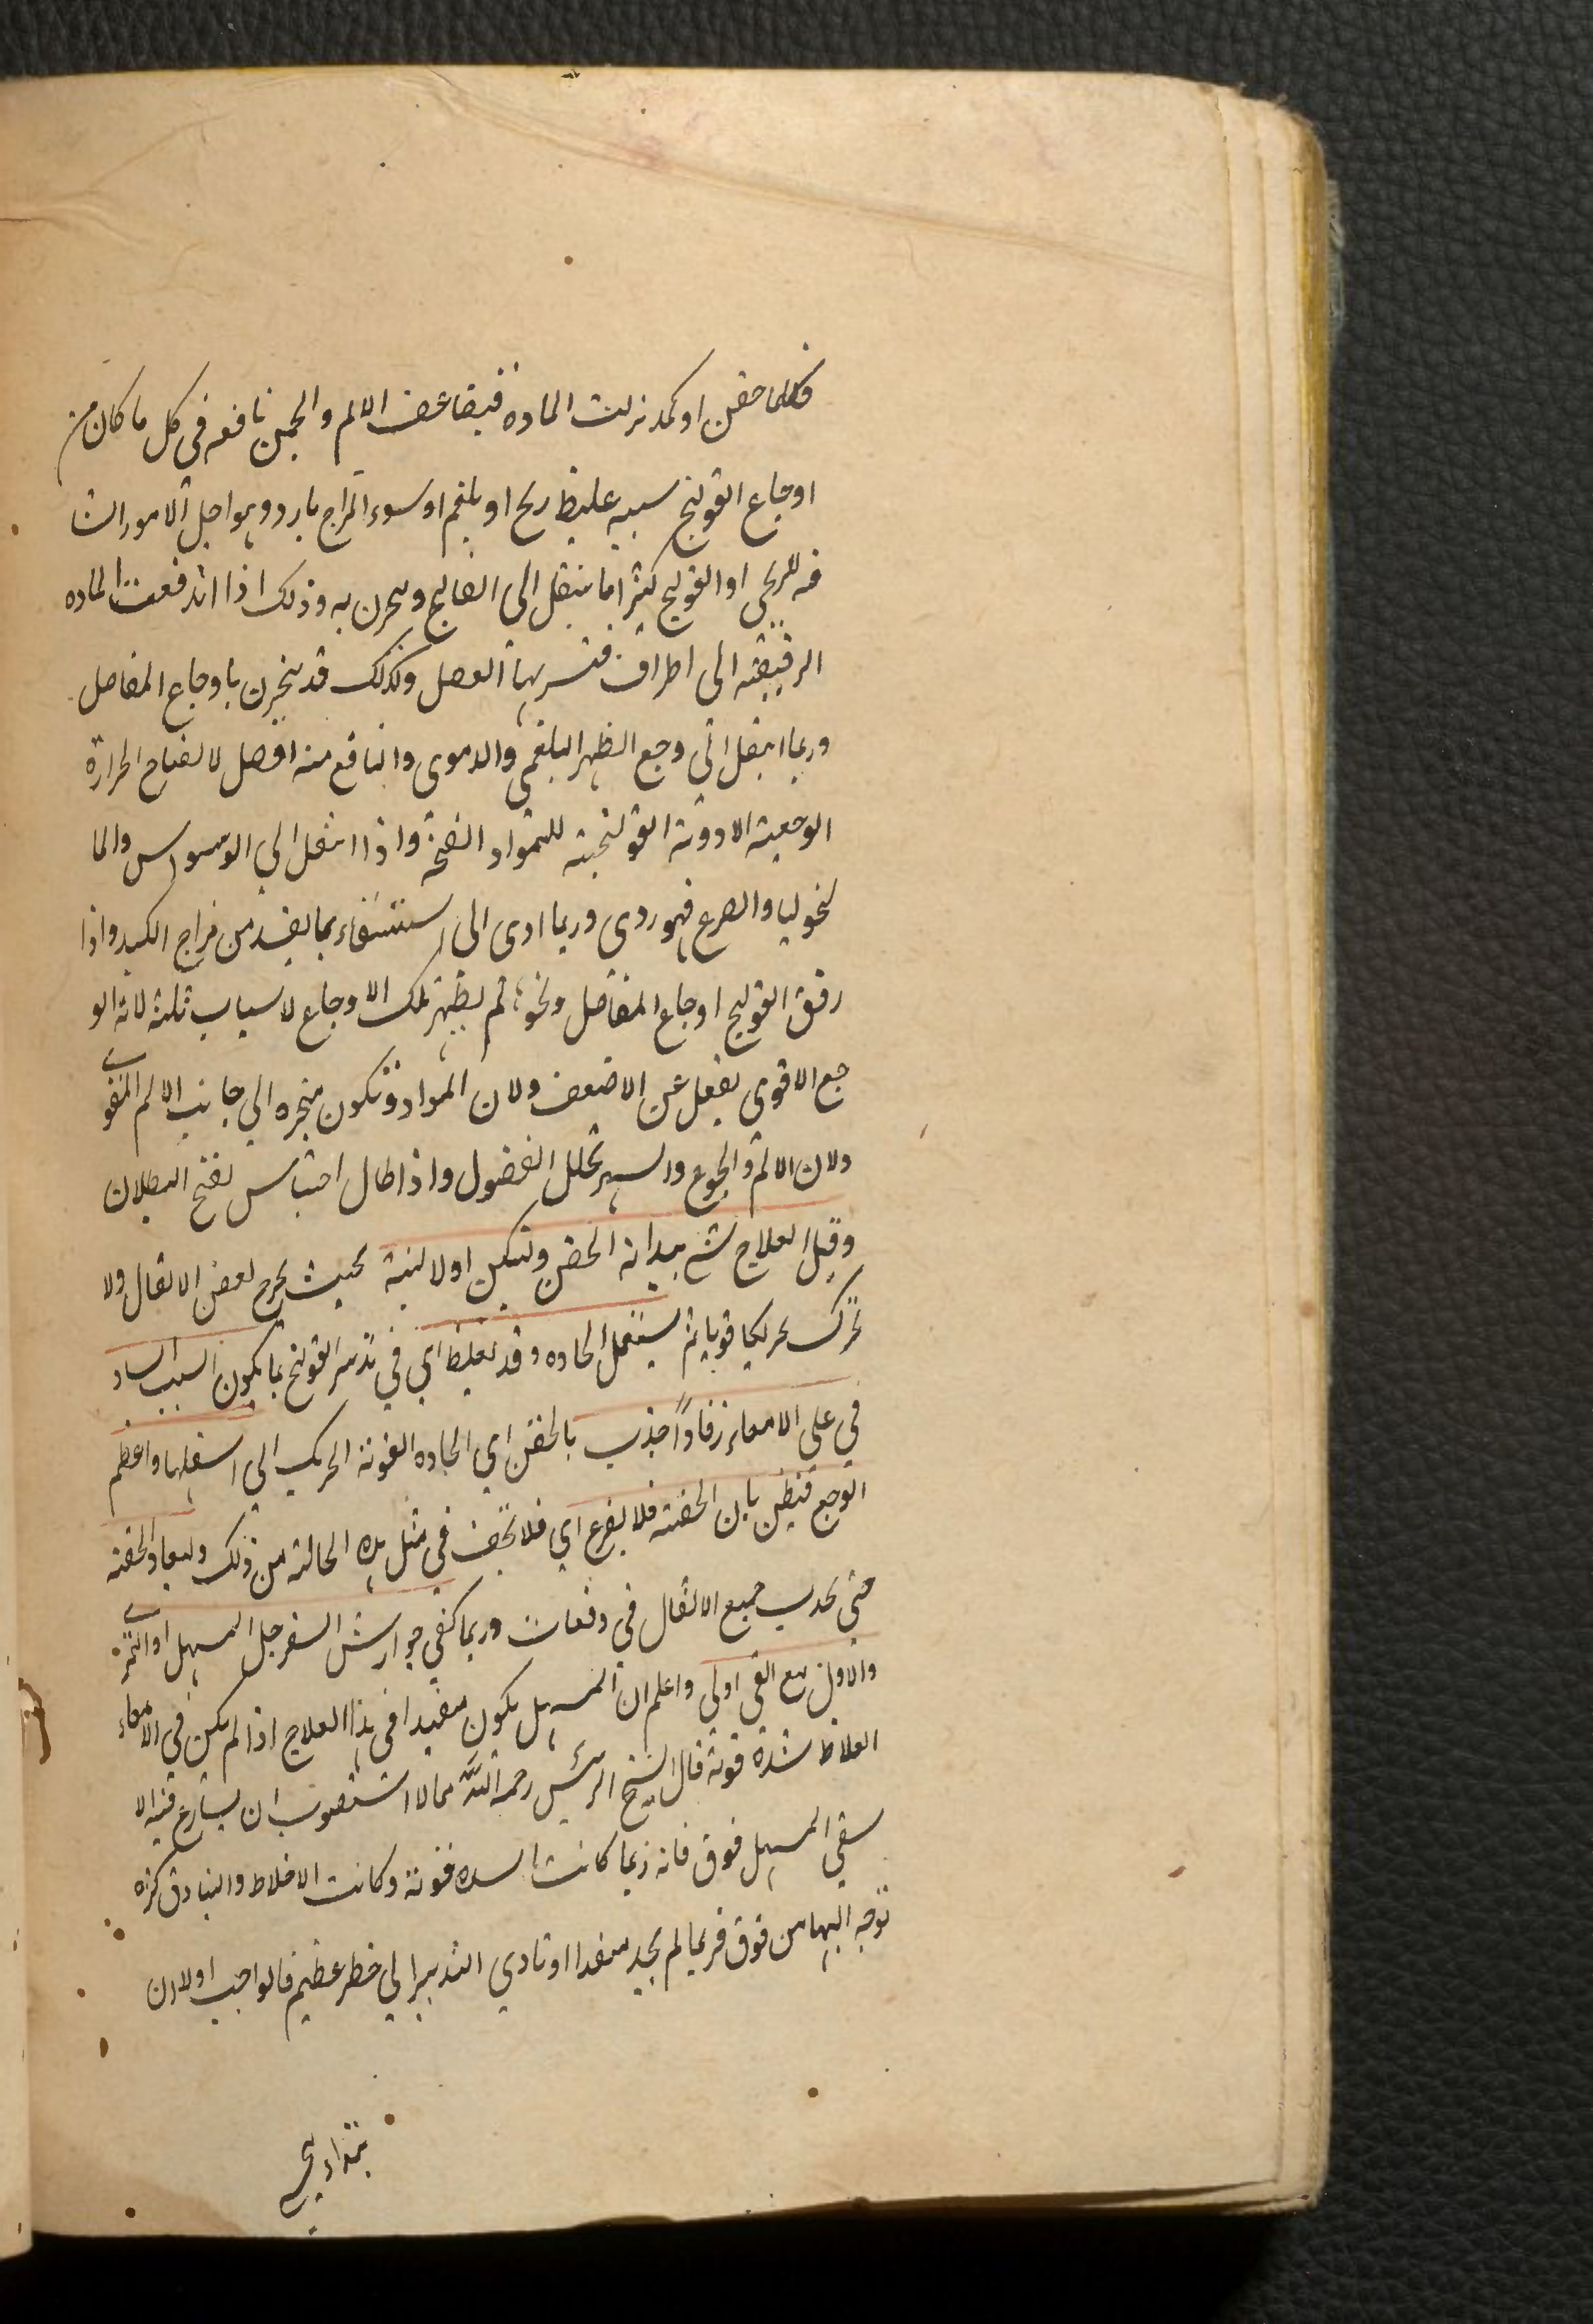 فكلما حقن او كمد نزلت المادة فيتضاعف الالم والحمى نافعه فى كل ما كان من
اوجاع القولنج سببه غليظ ريح او بلغم او سوء المزاج بارد وهو اجل الامور الشا
فه للريحى او القولنج كثيرا ما ينتقل الى الفالج وبحرن به وذلك اذا اندفعت المادة
الرقيقة الى اطراف فتشربها العضل وكذلك قد يبحرن باوجاع المفاصل
وربما انتقل الى وجع الظهر البلغمى والدموى والنافع منه الفصل لانضاج الحرارة
الوجعية الادوية القولنجية للمواد الفجة واذا انتقل الى الوسواس والما
لنخوليا والصرع فهو ردى وربما ادى الى استسقاء بما يفسد من مزاج الكبد واذا
رفق القولنج اوجاع المفاصل ونحوه لم يظهر تلك الاوجاع لاسباب ثلثة لانه الو
جع الاقوى يغفل عن الاضعف ولان المواد تكون منجره الى جانب الالم القوى
ولان الالم والجوع والسهر تحلل الفضول واذا طال احتباس لفتح البطلان
وقيل العلاج يبدا به الحقن ولتكن اولا لينة بحيث يخرج بعض الاثقال ولا
تحرك تحريكا قويا ثم يستعمل الحاده وقد يغلط اي في تدبير القولنج بما يكون السبب الساد
في علي الامعاء زقاوا جذب بالحقن اي الحاده القوية الحريك الي اسفلها واعظم
الوجع فيظن بان الحقنة فلا يفزع اي فلا تخف في مثل هذه الحالة من ذلك وليعاود الحقنه
حتي يجدب جميع الاثقال في دفعات وربما كفي جوارش السفرجل المسهل او التمرى
والاول مع القى اولى واعلم ان المسهل يكون مفيدا فى هذا العلاج اذا لم يكن في الامعاء
الغلاظ شدة قوية قال الشيخ الرئيس رحمه الله مما لا استصوب ان يسارع فيه الا
سقي المسهل فوق فانه ربما كانت السده قوية وكانت الاخلاط والبنادق كثره
توجه اليها من فوق فربما لم يجد منفذا او تادي التدبير الي خطر عظيم فالواجب اولا ان